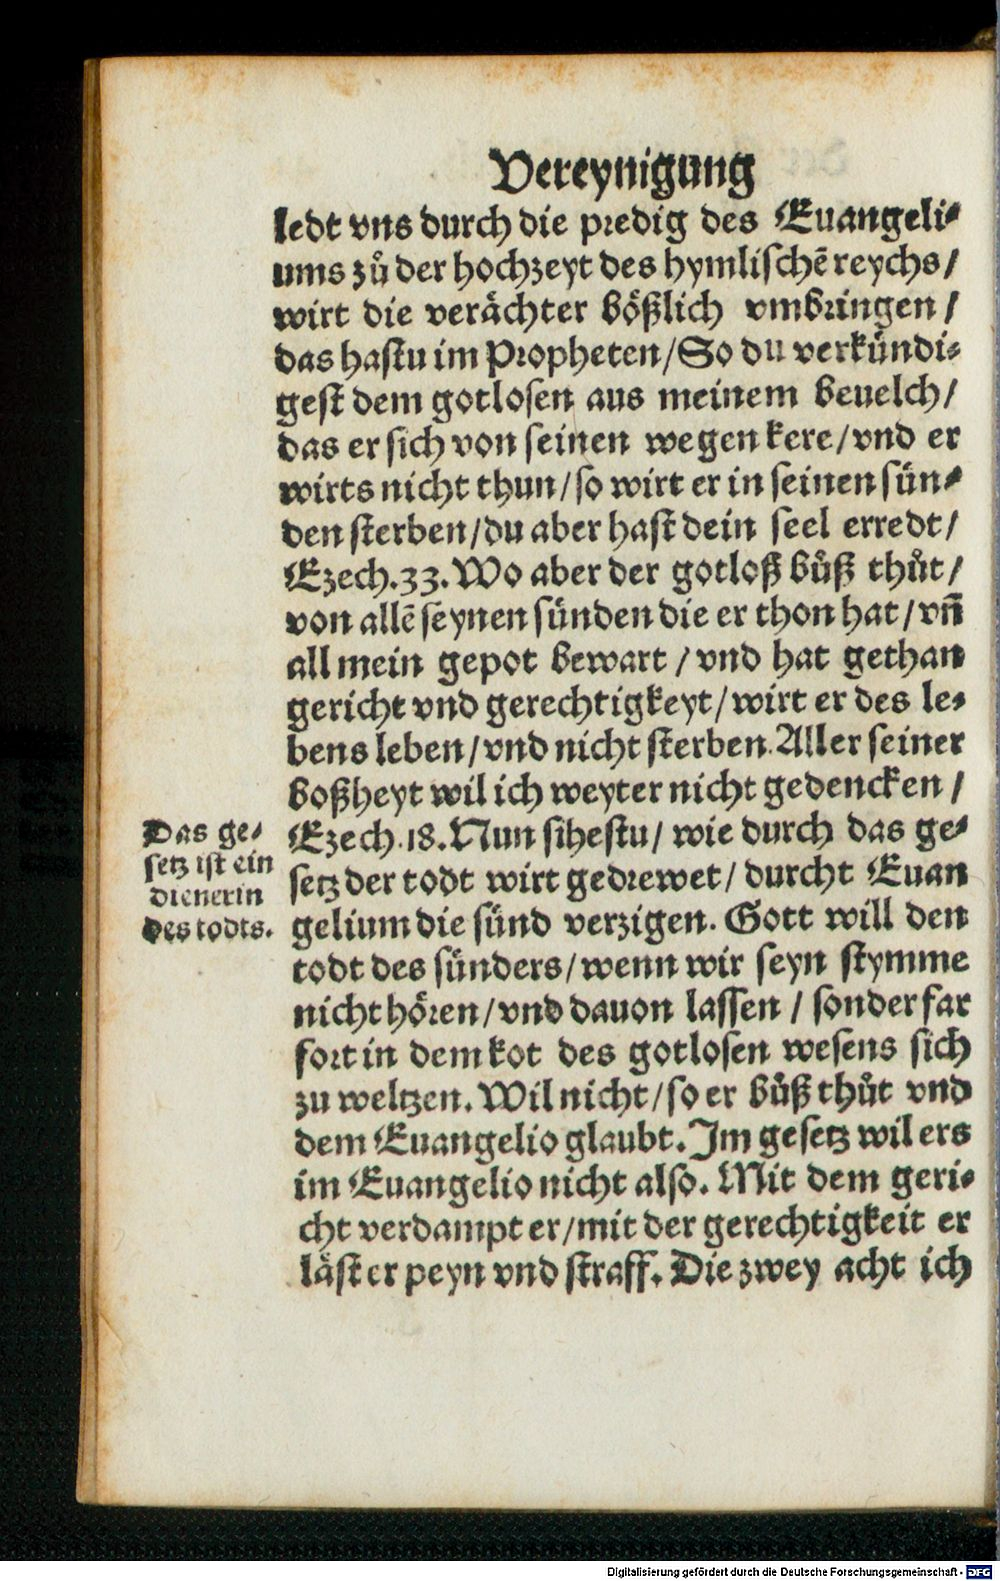 Vereynigung
ledt vns durch die predig des Euangeli⸗
ums zů der hochzeyt des hymlischē reychs/
wirt die verächter bößlich vmbringen/
das hastu im Propheten/So du verkündi⸗
gest dem gotlosen aus meinem beuelch/
das er sich von seinen wegen kere/vnd er
wirts nicht thun/so wirt er in seinen sün⸗
den sterben/du aber hast dein seel erredt/
Ezech.33.Wo aber der gotloß bůß thůt/
von allē seynen sünden die er thon hat/vñ
all mein gepot bewart/vnd hat gethan
gericht vnd gerechtigkeyt/wirt er des le⸗
bens leben/vnd nicht sterben.Aller seiner
boßheyt wil ich weyter nicht gedencken/
Ezech.18.Nun sihestu/wie durch das ge⸗
setz der todt wirt gedrewet/durcht Euan
gelium die sünd verzigen. Gott will den
todt des sünders/wenn wir seyn stymme
nicht hören/vnd dauon lassen/sonder far
fort in dem kot des gotlosen wesens sich
zu weltzen. Wil nicht/so er bůß thůt vnd
dem Euangelio glaubt. Im gesetz wil ers
im Euangelio nicht also. Mit dem geri⸗
cht verdampt er/mit der gerechtigkeit er
läst er peyn vnd straff. Die zwey acht ich
Das ge⸗
setz ist ein
dienerin
des todts.
Digitalisierung gefördert durch die Deutsche Forschungsgemeinschaft - DFG